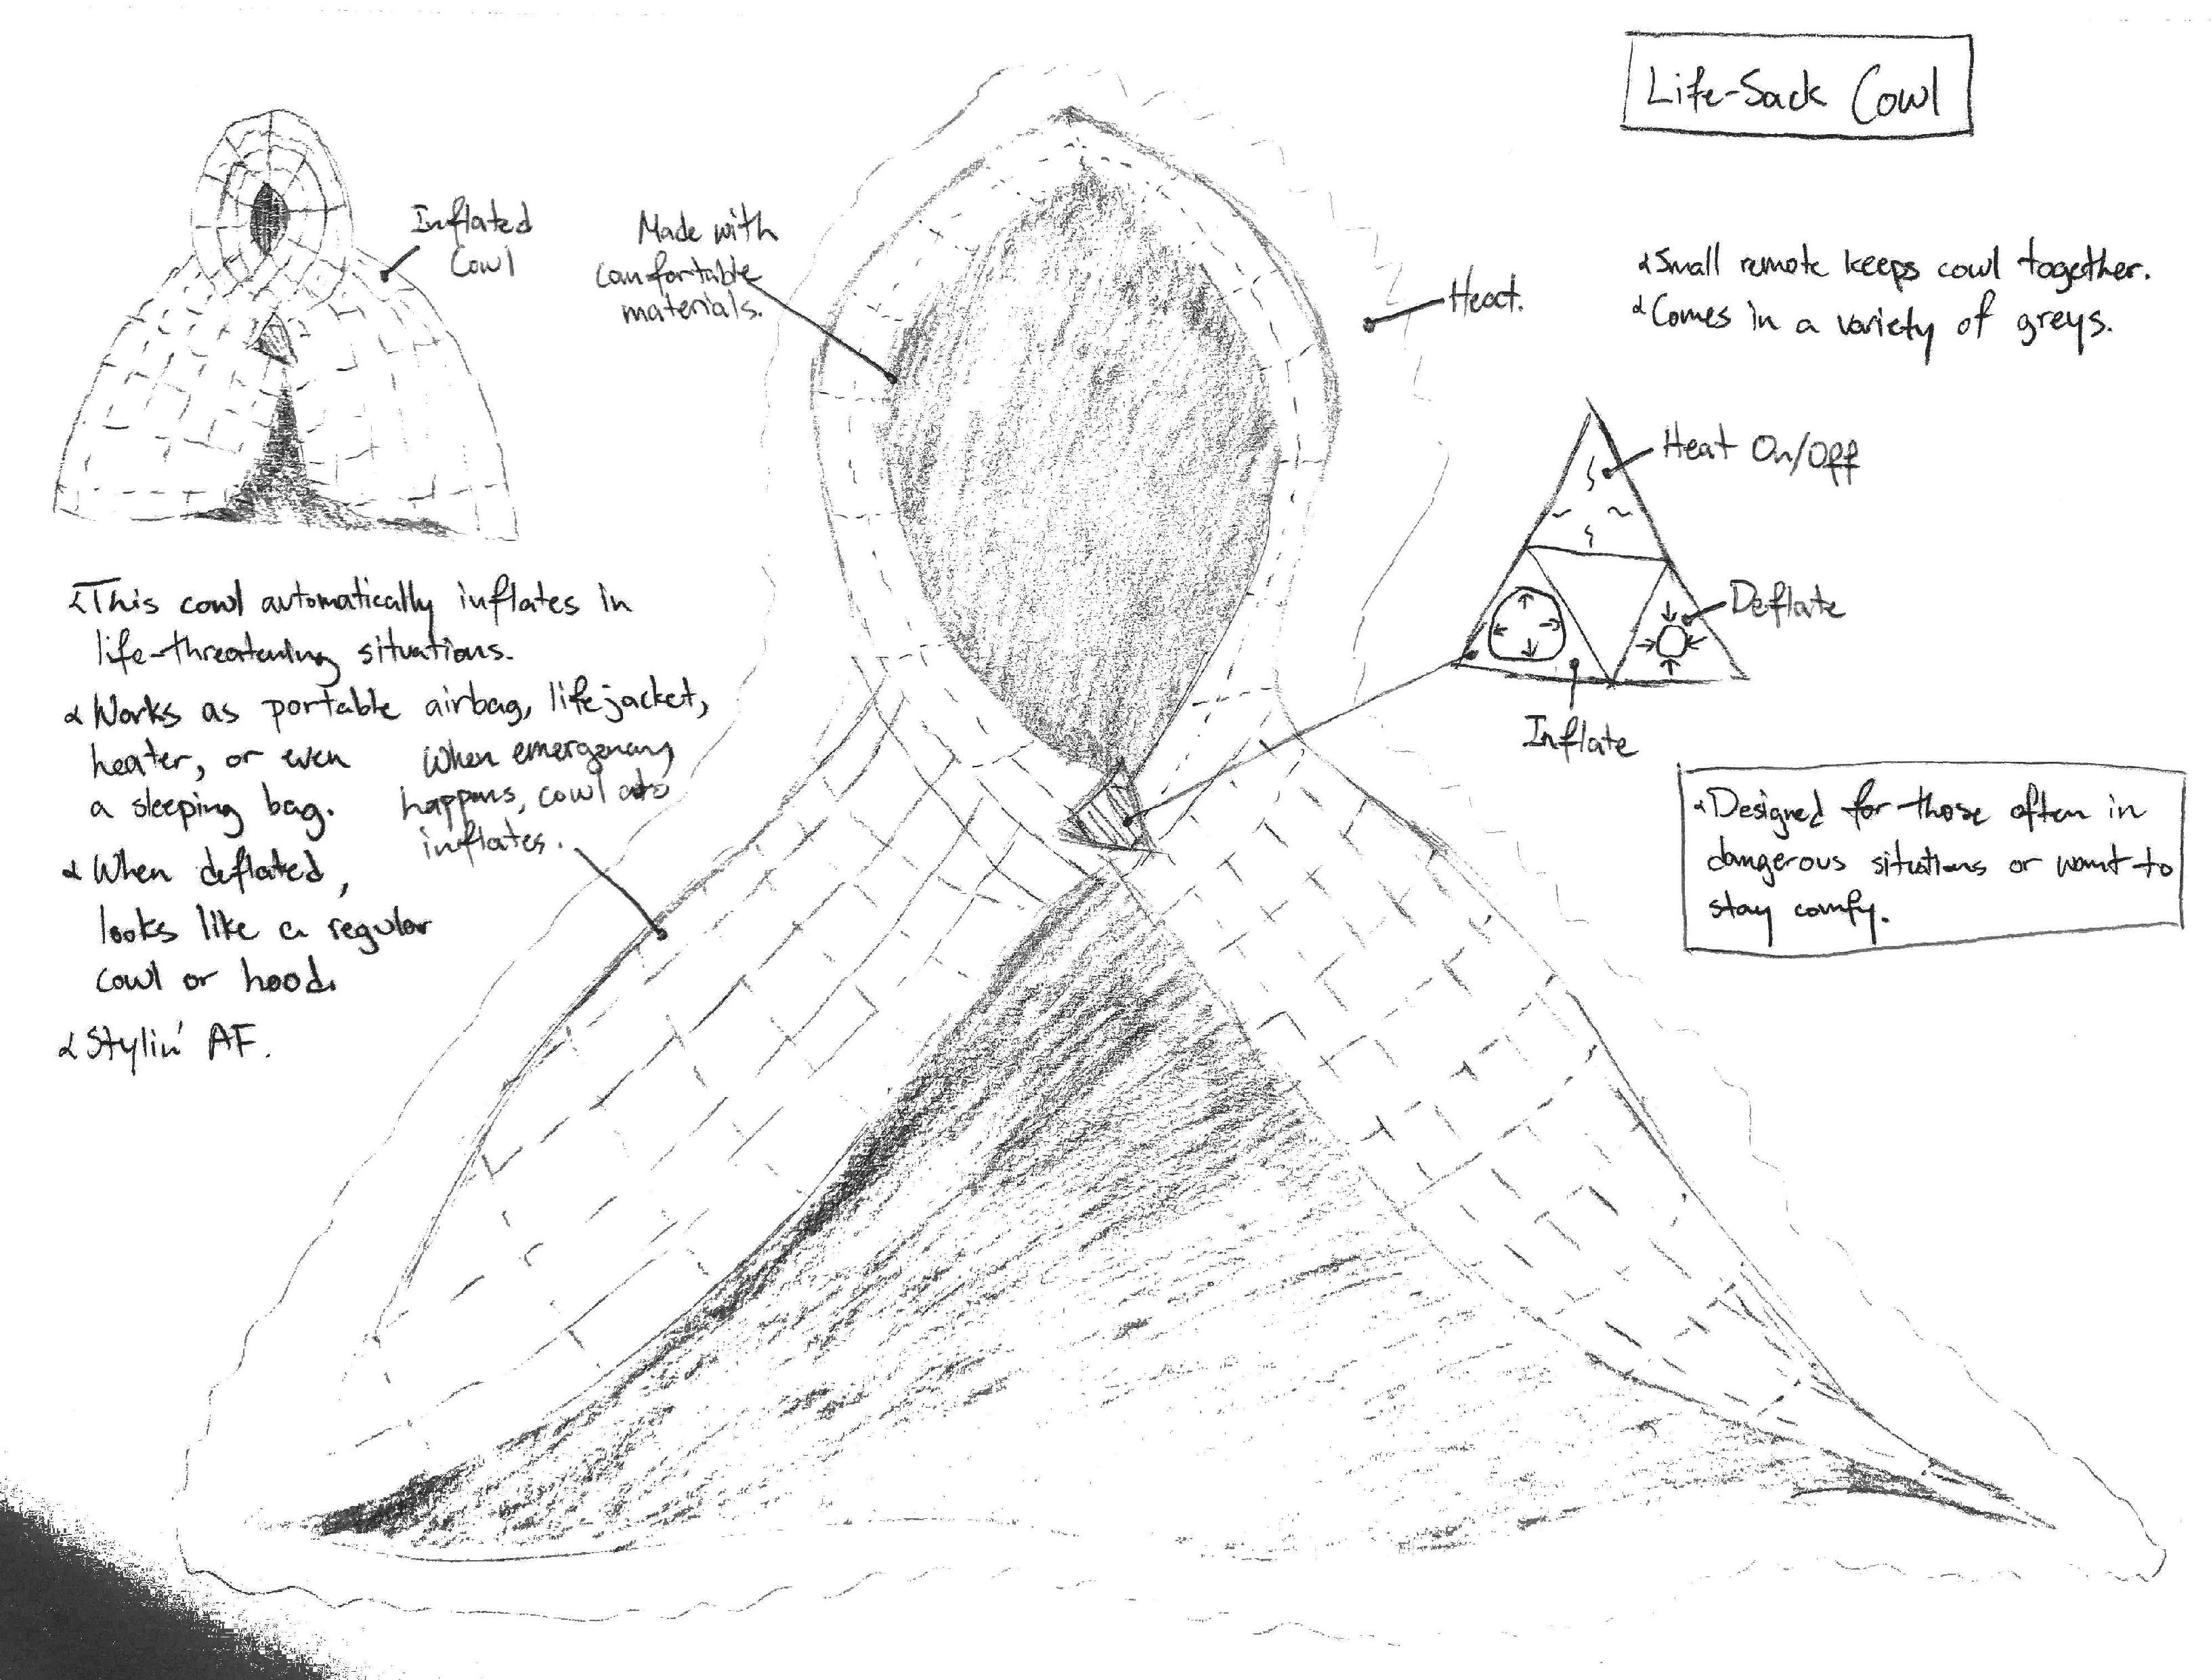 Life-Sack Cowl
Inflated
Cowl
Made with
comfortable
materials.
Heat.
Small remote keeps cowl together.
Comes in a variety of greys.
Heat On/Off
Deflate
Inflate
This cowl automatically inflates in
life-threatening situations.
Works as portable airbag, lifejacket,
heater, or even
a sleeping bag.
When deflated,
looks like a regular
cowl or hood.
Stylin' AF.
When emergency
happens, cowl auto
inflates.
Designed for those often in
dangerous situations or want to
stay comfy.